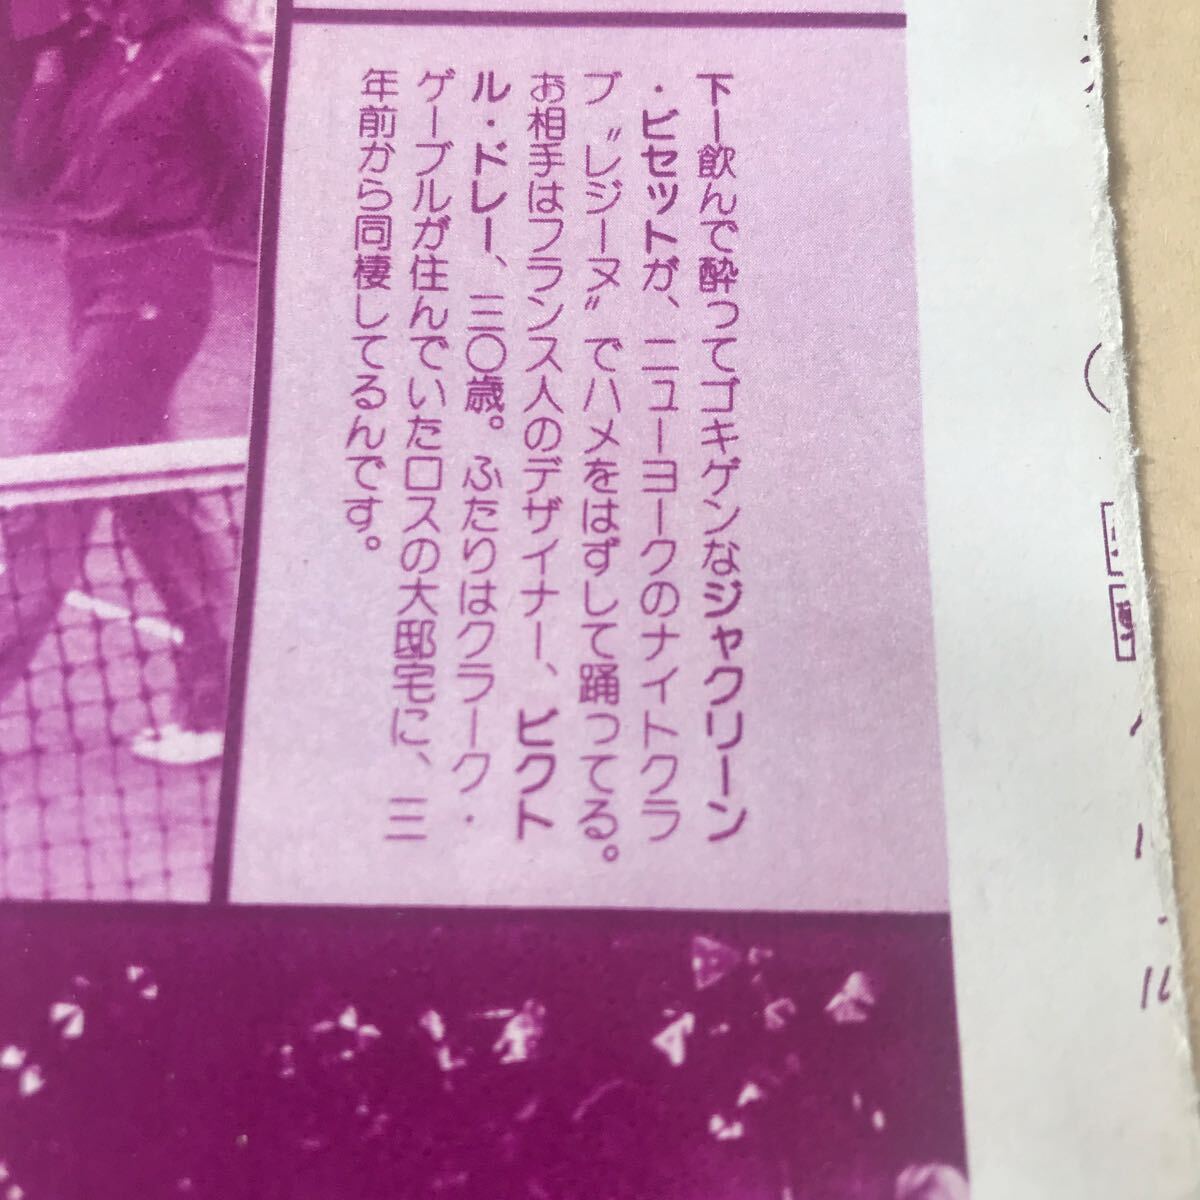 下ー飲んで酔ってゴキゲンなジャクリーン
・ビセットが、ニューヨークのナイトクラ
ブ〝レジーヌ〟でハメをはずして踊ってる。
お相手はフランス人のデザイナー、ビクト
ル・ドレー、三〇歳。ふたりはクラーク・
ゲーブルが住んでいたロスの大邸宅に、三
年前から同棲してるんです。